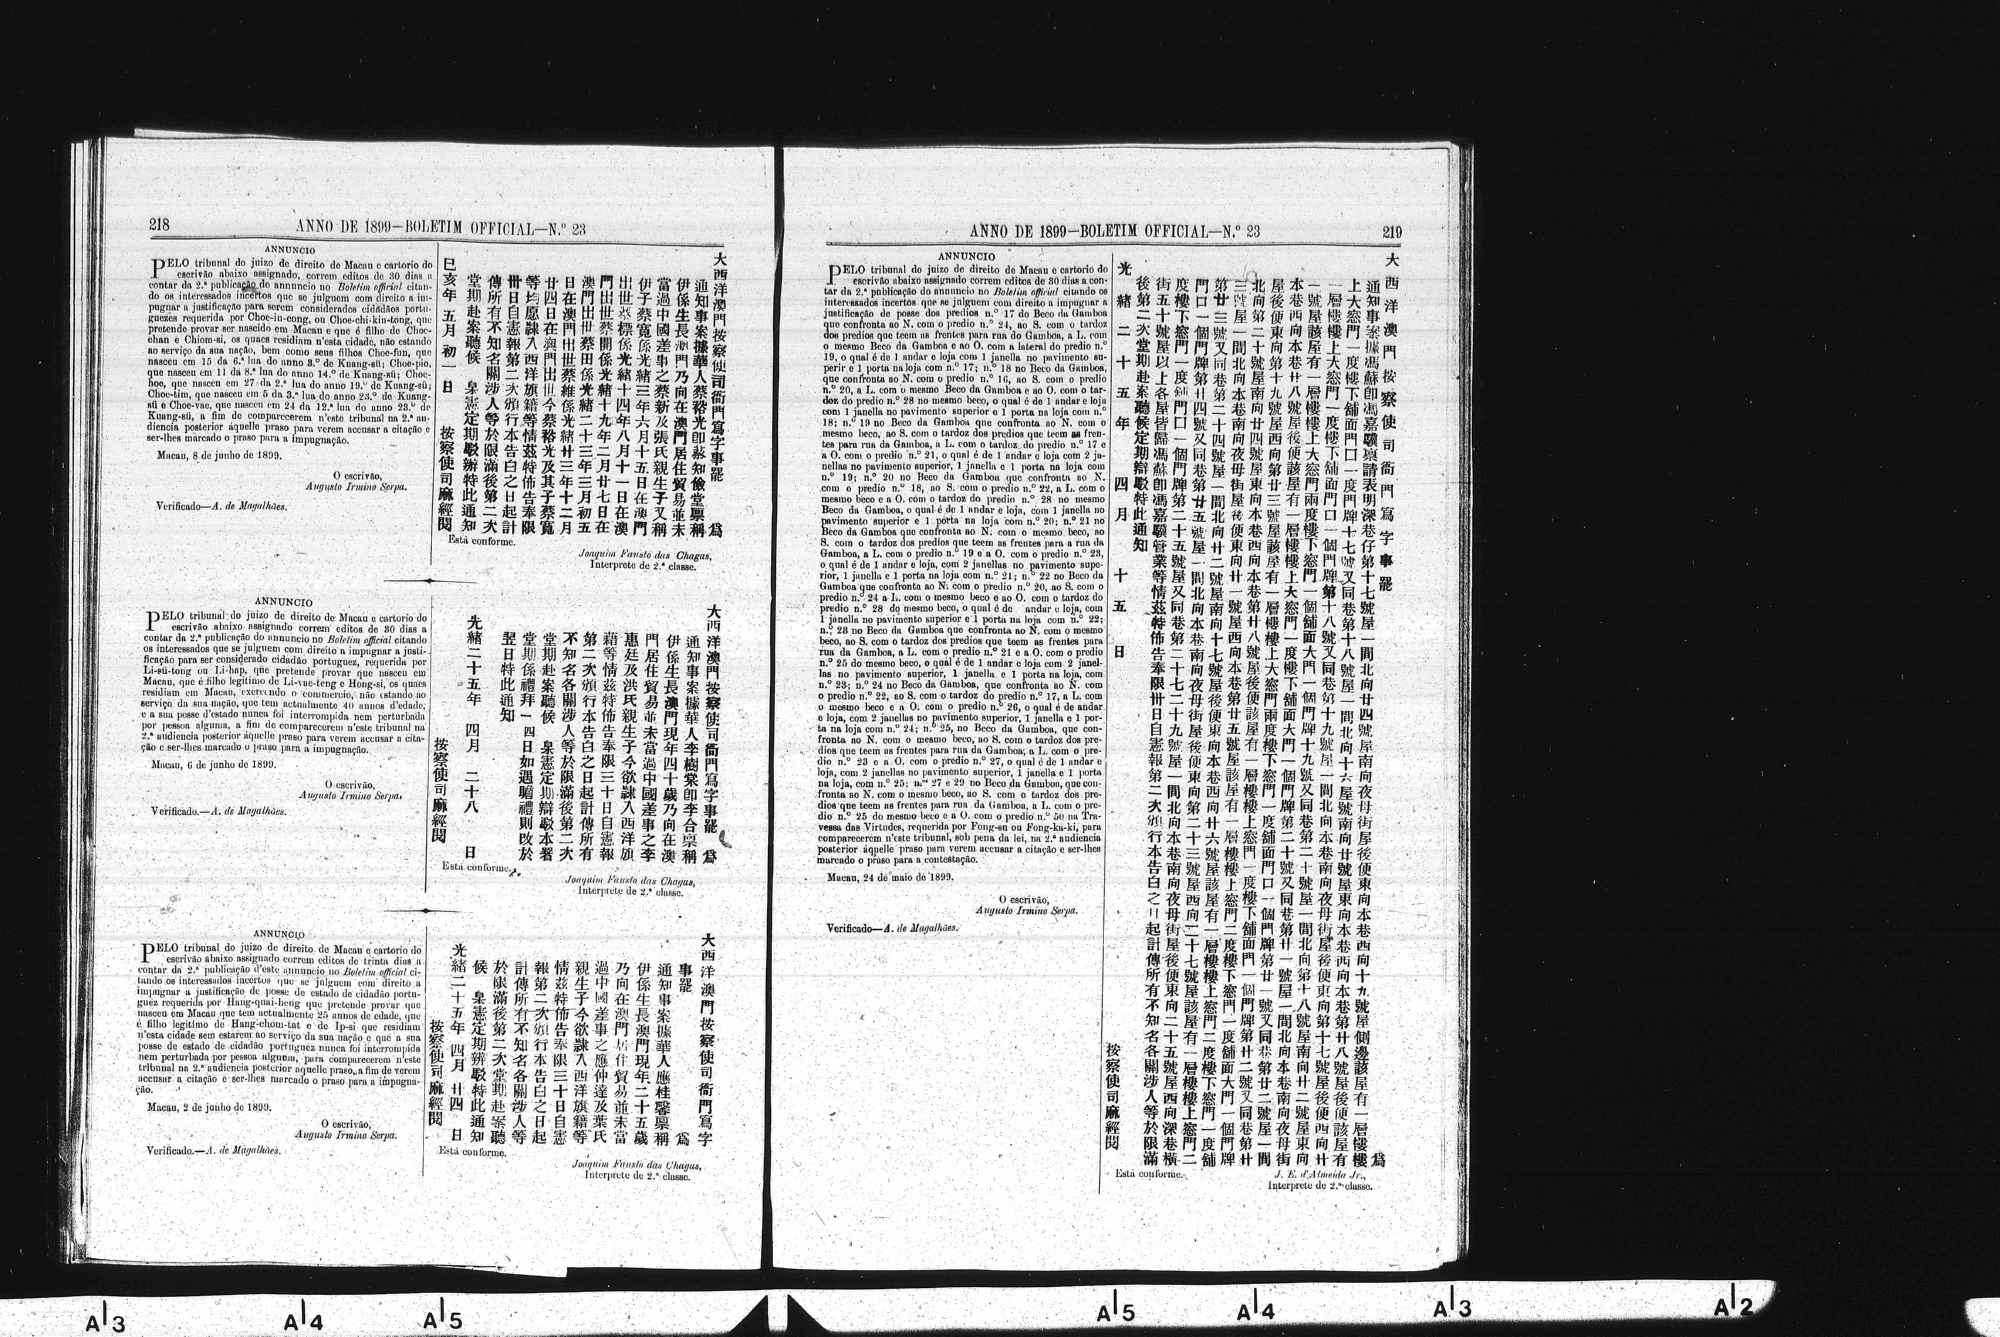 218
ANNO DE 1899—BOLETIM OFFICIAL—N.º 23
ANNUNCIO
PELO tribunal do juizo de direito de Macau e cartorio do
escrivão abaixo assignado, correm editos de 30 dias a
contar da 2.ª publicação do annuncio no Boletim official citan-
do os interessados incertos que se julguem com direito a im-
pugnar a justificação para serem considerados cidadãos portu-
guezes requerida por Choc-iu-cong, ou Choc-chi-kin-tong, que
pretende provar ser nascido em Macau e que é filho de Choc-
chan e Chiom-si, os quaes residiam n'esta cidade, não estando
ao serviço da sua nação, bem como seus filhos Choc-fun, que
nasceu em 15 da 6.ª lua do anno 3.º de Kuang-sü; Choc-pio,
que nasceu em 11 da 8.ª lua do anno 14.º de Kuang-sü; Choc-
hoc, que nasceu em 27 da 2.ª lua do anno 19.º de Kuang-sü;
Choc-tim, que nasceu em 5 da 3.ª lua do anno 23.º de Kuang-
sü e Choc-vae, que nasceu em 24 da 12.ª lua do anno 23.º de
Kuang-sü, a fim de comparecerem n'este tribunal na 2.ª au-
diencia posterior áquelle praso para verem accusar a citação e
ser-lhes marcado o praso para a impugnação.
Macau, 8 de junho de 1899.
O escrivão,
Augusto Irmino Serpa.
Verificado—A. de Magalhães.
大西洋澳門按察使司衙門寫字事罷 爲
通知事案據華人蔡裕光卽蔡知儉堂禀稱
伊係生長澳門乃向在澳門居住貿易並未
當過中國差事之蔡新及張氏親生子又稱
伊子蔡寬係光緒三年六月十五日在澳門
出世蔡標係光緒十四年八月十一日在澳
門出世蔡開係光緒十九年二月廿七日在
澳門出世蔡田係光緒二十三年三月初五
日在澳門出世蔡維係光緒廿三年十二月
廿四日在澳門出世今蔡裕光及其子蔡寬
等均愿隸入西洋旗籍等情茲特佈告奉限
卅日自憲報第二次頒行本告白之日起計
傳所有不知名關涉人等於限滿後第二次
堂期赴案聽候 臬憲定期駁辦特此通知
巳亥年五月初一日 按察使司麻經閱
Está conforme.
Joaquim Fausto das Chagas,
Interprete de 2.ª classe.
ANNUNCIO
PELO tribunal do juizo de direito de Macau e cartorio do
escrivão abaixo assignado correm editos de 30 dias a
contar da 2.ª publicação do annuncio no Boletim official citando
os interessados que se julguem com direito a impugnar a justi-
ficação para ser considerado cidadão portuguez, requerida por
Li-sü-tong ou Li-hap, que pretende provar que nasceu em
Macau, que é filho legitimo de Li-vae-teng e Hong-si, os quaes
residiam em Macau, exercendo o commercio, não estando ao
serviço da sua nação, que tem actualmente 40 annos d'edade,
e a sua posse d'estado nunca foi interrompida nem perturbada
por pessoa alguma, a fim de comparecerem n'este tribunal na
2.ª audiencia posterior áquelle praso para verem accusar a cita-
ção e ser-lhes marcado o praso para a impugnação.
Macau, 6 de junho de 1899.
O escrivão,
Augusto Irmino Serpa.
Verificado.—A. de Magalhães.
大西洋澳門按察使司衙門寫字事罷 爲
通知事案據華人李樹棠卽李合禀稱
伊係生長澳門現年四十歲乃向在澳
門居住貿易並未當過中國差事之李
惠廷及洪氏親生子今欲隸入西洋旗
藉等情茲特佈告奉限三十日自憲報
第二次頒行本告白之日起計傳所有
不知名各關涉人等於限滿後第二次
堂期赴案聽候 臬憲定期辯駁本署
堂期係禮拜一四日如遇瞻禮則改於
翌日特此通知
光緒二十五年 四月 二十八 日
按察使司麻經閱
Está conforme.
Joaquim Fausto das Chagas,
Interprete de 2.ª classe.
ANNUNCIO
PELO tribunal do juizo de direito de Macau e cartorio do
escrivão abaixo assignado correm editos de trinta dias a
contar da 2.ª publicação d'este annuncio no Boletim official ci-
tando os interessados incertos que se julguem com direito a
impugnar a justificação de posse de estado de cidadão portu-
guez requerida por Hang-quai-heng que pretende provar que
nasceu em Macau que tem actualmente 25 annos de edade, que
é filho legitimo de Hang-chom-tat e de Ip-si que residiam
n'esta cidade sem estarem ao serviço da sua nação e que a sua
posse de estado de cidadão portuguez nunca foi interrompida
nem perturbada por pessoa alguma, para comparecerem n'este
tribunal na 2.ª audiencia posterior aquelle praso, a fim de verem
accusar a citação e ser-lhes marcado o praso para a impugna-
ção.
Macau, 2 de junho de 1899.
O escrivão,
Augusto Irmino Serpa.
Verificado.—A. de Magalhães.
大西洋澳門按察使司衙門寫字
事罷 爲
通知事案據華人應桂馨禀稱
伊係生長澳門現年二十五歲
乃向在澳門居住貿易並未當
過中國差事之應仲達及葉氏
親生子今欲隸入西洋旗籍等
情茲特佈告奉限三十日自憲
報第二次頒行本告白之日起
計傳所有不知名各關涉人等
於限滿後第二次堂期赴案聽
候 臬憲定期辨駁特此通知
光緒二十五年 四月 廿四 日
按察使司麻經閱
Está conforme.
Joaquim Fausto das Chagas,
Interprete de 2.ª classe.
ANNO DE 1899—BOLETIM OFFICIAL—N.º 23
219
ANNUNCIO
PELO tribunal do juizo de direito de Macau e cartorio do
escrivão abaixo assignado correm editos de 30 dias a con-
tar da 2.ª publicação do annuncio no Boletim official citando os
interessados incertos que se julguem com direito a impugnar a
justificação de posse dos predios n.º 17 do Beco da Gamboa
que confronta ao N. com o predio n.º 24, ao S. com o tardoz
dos predios que teem as frentes para rua do Gamboa, a L. com
o mesmo Beco da Gamboa e ao O. com a lateral do predio n.º
19, o qual é de 1 andar e loja com 1 janella no pavimento su-
perir e 1 porta na loja com n.º 17; n.º 18 no Beco da Gamboa,
que confronta ao N. com o predio n.º 16, ao S. com o predio
n.º 20, a L. com o mesmo Beco da Gamboa e ao O. com o tar-
doz do predio n.º 28 no mesmo beco, o qual é de 1 andar e loja
com 1 janella no pavimento superior e 1 porta na loja com n.º
18; n.º 19 no Beco da Gamboa que confronta ao N. com o
mesmo beco, ao S. com o tardoz dos predios que teem as fren-
tes para rua da Gamboa, a L. com o tardoz do predio n.º 17 e
a O. com o predio n.º 21, o qual é de 1 andar e loja com 2 ja-
nellas no pavimento superior, 1 janella e 1 porta na loja com
n.º 19; n.º 20 no Beco da Gamboa que confronta ao N.
com o predio n.º 18, ao S. com o predio n.º 22, a L. com o
mesmo beco e a O. com o tardoz do predio n.º 28 no mesmo
Beco da Gamboa, o qual é de 1 andar e loja, com 1 janella no
pavimento superior e 1 porta na loja com n.º 20; n.º 21 no
Beco da Gamboa que confronta ao N. com o mesmo beco, ao
S. com o tardoz dos predios que teem as frentes para a rua da
Gamboa, a L. com o predio n.º 19 e a O. com o predio n.º 23,
o qual é de 1 andar e loja, com 2 janellas no pavimento supe-
rior, 1 janella e 1 porta na loja com n.º 21; n.º 22 no Beco da
Gamboa que confronta ao N. com o predio n.º 20, ao S. com o
predio n.º 24 a L. com o mesmo beco e ao O. com o tardoz do
predio n.º 28 do mesmo beco, o qual é de andar e loja, com
1 janella no pavimento superior e 1 porta na loja com n.º 22;
n.º 23 no Beco da Gamboa que confronta ao N. com o mesmo
beco, ao S. com o tardoz dos predios que teem as frentes para
rua da Gamboa, a L. com o predio n.º 21 e a O. com o predio
n.º 25 do mesmo beco, o qual é de 1 andar e loja com 2 janel-
las no pavimento superior, 1 janella e 1 porta na loja, com
n.º 23; n.º 24 no Beco da Gamboa, que confronta ao N. com
o predio n.º 22, ao S. com o tardoz do predio n.º 17, a L. com
o mesmo beco e a O. com o predio n.º 26, o qual é de andar
e loja, com 2 janellas no pavimento superior, 1 janella e 1 por-
ta na loja com n.º 24; n.º 25, no Beco da Gamboa, que con-
fronta ao N. com o mesmo beco, ao S. com o tardoz dos pre-
dios que teem as frentes para rua da Gamboa, a L. com o pre-
dio n.º 23 e a O. com o predio n.º 27, o qual é de 1 andar e
loja, com 2 janellas no pavimento superior, 1 janella e 1 porta
na loja, com n.º 25; n.ºs 27 e 29 no Beco da Gamboa, que con-
fronta ao N. com o mesmo beco, ao S. com o tardoz dos pre-
dios que teem as frentes para rua da Gamboa, a L. com o pre-
dio n.º 25 do mesmo beco e a O. com o predio n.º 50 na Tra-
vessa das Virtudes, requerida por Fong-su ou Fong-ka-ki, para
comparecerem n'este tribunal, sob pena da lei, na 2.ª audiencia
posterior áquelle praso para verem accusar a citação e ser-lhes
marcado o praso para a contestação.
Macau, 24 de maio de 1899.
O escrivão,
Augusto Irmino Serpa.
Verificado—A. de Magalhães.
大西洋澳門按察使司衙門寫字事罷 爲
通知事案據馮蘇卽馮嘉驥禀請表明深巷仔第十七號屋一間北向廿四號屋南向夜母街屋後便東向本巷西向十九號屋側邊該屋有一層樓樓
上大窓門一度樓下舖面門口一度門牌十七號又同巷第十八號屋一間北向十六屋號南向廿號屋東向本巷西向本巷第廿八號屋後便該屋有
一層樓樓上大窓門一度樓下舖面門口一個門牌第十八號又同巷第十九號屋一間北向本巷南向夜母街屋後便東向第十七號屋後便西向廿
一號屋該屋有一層樓樓上大窓門兩度樓下窓門一個舖面大門一個門牌十九號又同巷第二十號屋一間北向第十八號屋南向廿二號屋東向
本巷西向本巷廿八號屋後便該屋有一層樓樓上大窓門一度樓下舖面大門一個門牌第二十號又同巷第廿一號屋一間北向本巷南向夜母街
屋後便東向第十九號屋西向第廿三號屋該屋有一層樓樓上大窓門兩度樓下窓門一度舖面門口一個門牌第廿一號又同巷第廿二號屋一間
北向第二十號屋南向廿四號屋東向本巷西向本巷第廿八號屋後便該屋有一層樓樓上窓門一度樓下舖面門一個門牌第廿二號又同巷第廿
三號屋一間北向本巷南向夜母街屋後便東向廿一號屋西向本巷第廿五號屋該屋有一層樓樓上窓門二度樓下窓門一度舖面大門一個門牌
第廿三號又同巷第二十四號屋一間北向廿二號屋南向十七號屋後便東向本巷西向廿六號屋該屋有一層樓樓上窓門二度樓下窓門一度舖
門口一個門牌第廿四號又同巷第廿五號屋一間北向本巷南向夜母街屋後便東向第二十三號屋西向二十七號屋該屋有一層樓樓上窓門二
度樓下窓門一度舖門口一個門牌第二十五號屋又同巷第二十七二十九號屋一間北向本巷南向夜母街屋後便東向二十五號屋西向深巷橫
街五十號屋以上各屋皆歸馮蘇卽馮嘉驥管業等情茲特佈告奉限卅日自憲報第二次頒行本告白之日起計傳所有不知名各關涉人等於限滿
後第二次堂期赴案聽候定期辯駁特此通知
光緒二十五年 四月 十五 日
按察使司麻經閱
Está conforme.
J. E. d'Almeida Jr.,
Interprete de 2.ª classe.
A3
A4
A5
A5
A4
A3
A2